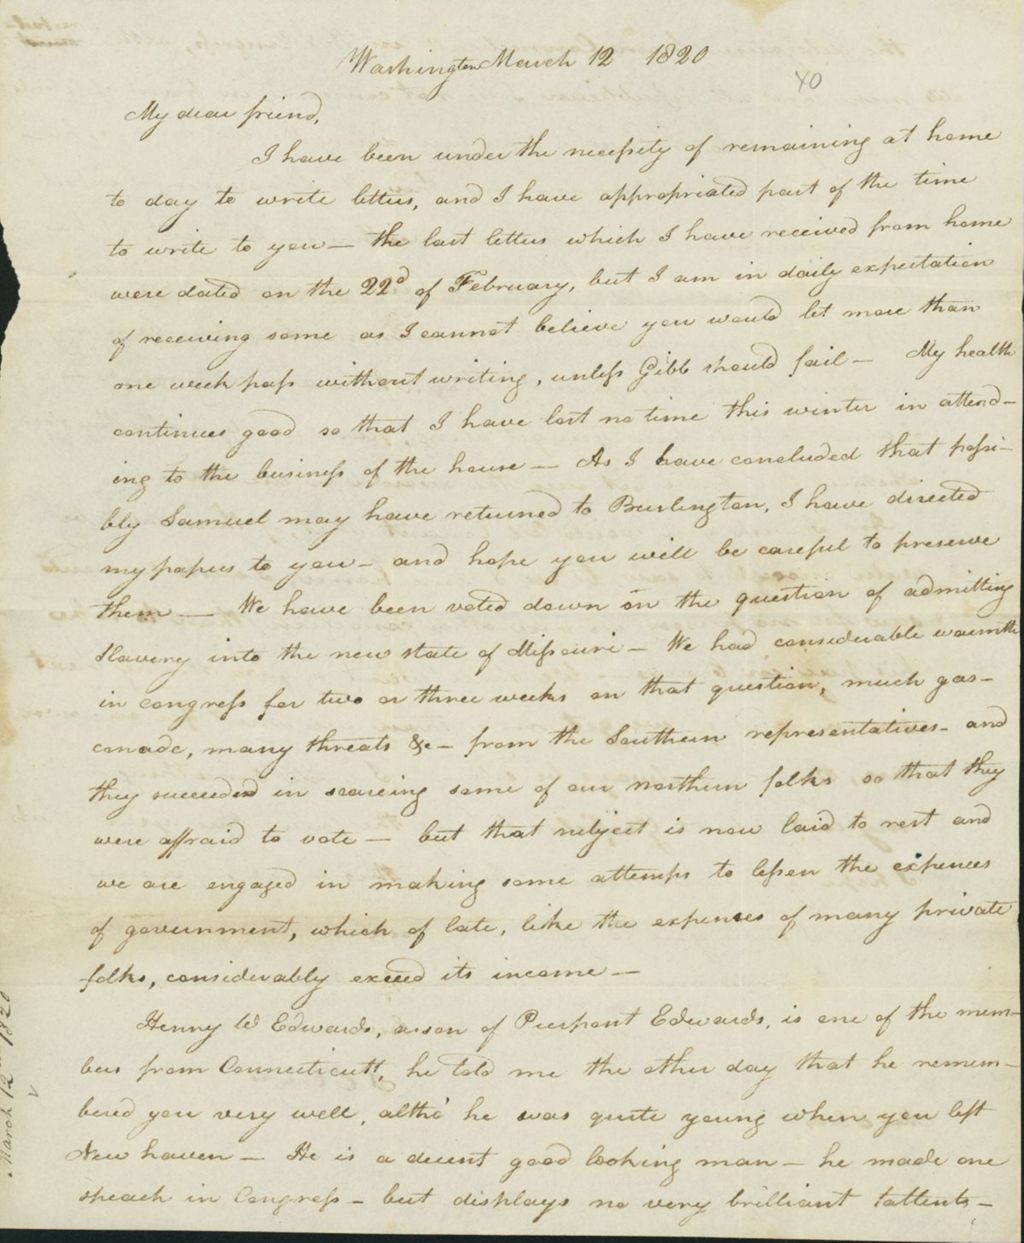 Washington March 12 1820
40
My dear friend,
I have been under the necessity of remaining at home
to day to write letters, and I have appropriated part of the time
to write to you — the last letters which I have received from home
were dated on the 22d of February, but I am in daily expectation
of receiving some as I cannot believe you would let more than
one week pass without writing, unless Gibb should fail — My health
continues good so that I have lost no time this winter in attend-
ing to the business of the house — As I have concluded that possi-
bly Samuel may have returned to Burlington, I have directed
my papers to you — and hope you will be careful to preserve
them — We have been voted down on the question of admitting
slavery into the new state of Missouri — We had considerable warmth
in congress for two or three weeks on that question, much gas-
conade, many threats &c — from the Southern representatives — and
they succeeded in scareing some of our northern folks so that they
were affraid to vote — but that subject is now laid to rest and
we are engaged in making some attemps to lessen the expences
of government, which of late, like the expences of many private
folks, considerably exceed its income —
Henny W Edwards, a son of Pierpont Edwards, is one of the mem-
bers from Connecticutt, he told me the other day that he remem-
bered you very well, altho' he was quite young when you left
New haven — He is a decent good looking man — he made one
speach in Congress — but displays no very brilliant tallents —
March 12th 1820